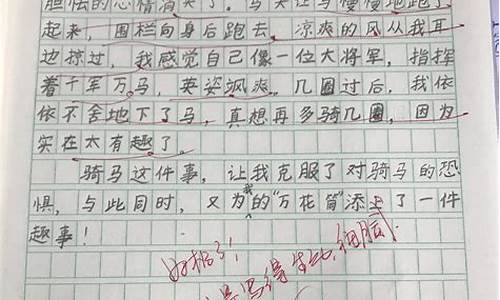 胆怯的心情消失了。马夫让马慢慢地跑了
起来，围栏向身后跑去，凉爽的风从我耳
边掠过，我感觉自己像一位大将军，指挥
着千军万马，英姿飒爽。几圈过后，我依
依不舍地下了马，真想再多骑几圈，因为
实在太有趣了。
骑马这件事，让我克服了对骑马的恐
惧，与此同时，又为我的“万花筒”添上了一件
趣事！
好极了！
写得生动、细腻